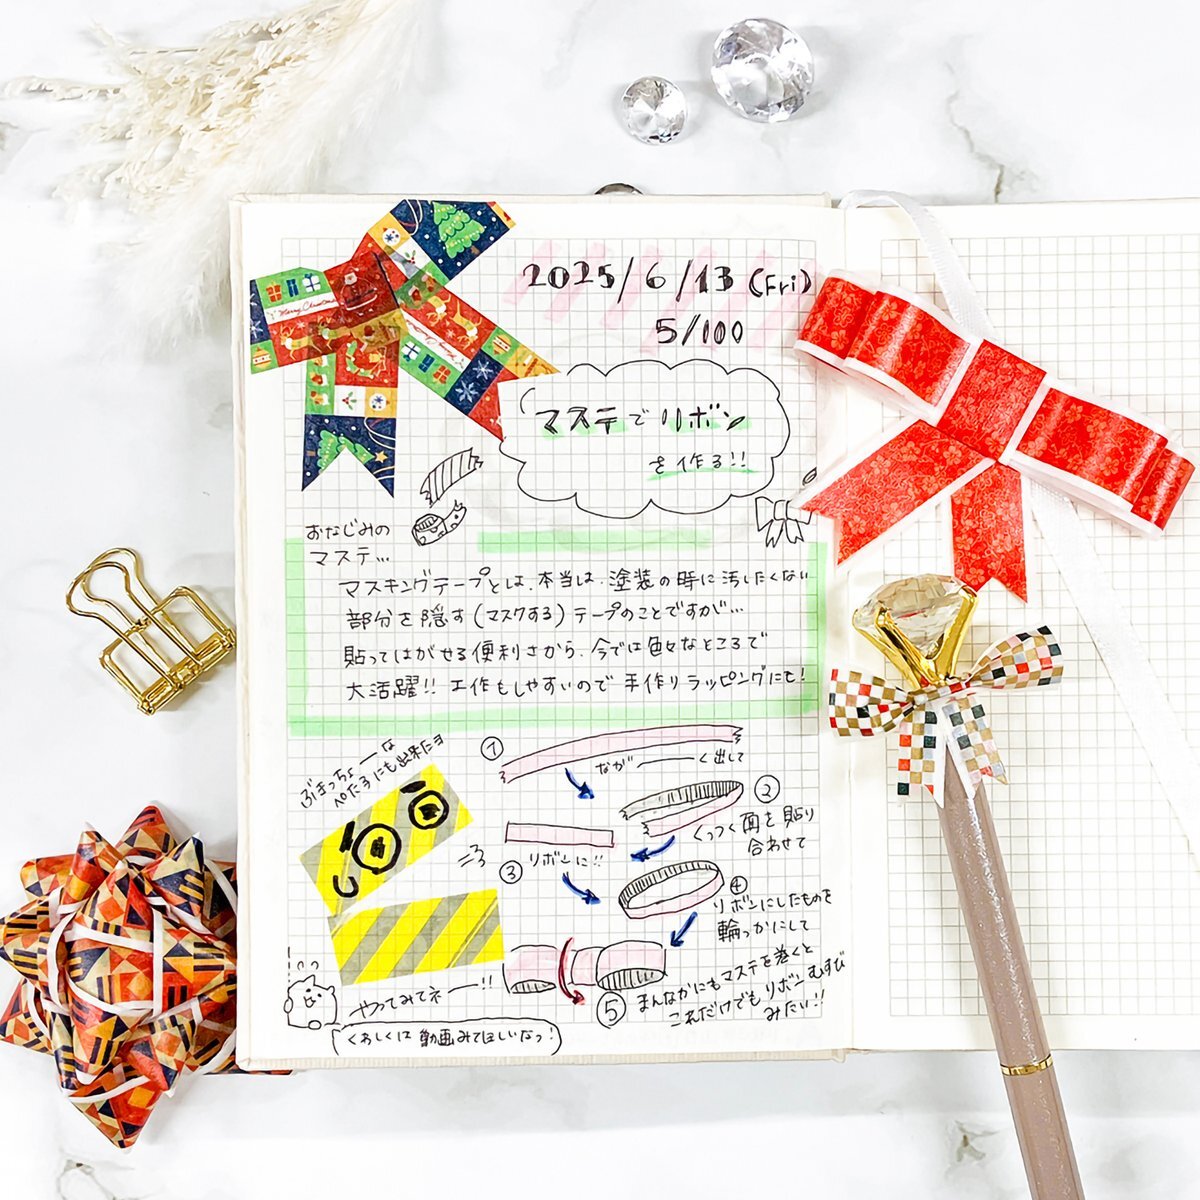 2025/6/13 (Fri)
5/100
マステでリボン
を作る!!
おなじみの
マステ...
マスキングテープとは、本当は、塗装の時に汚したくない
部分を隠す(マスクする)テープのことですが...
貼ってはがせる便利さから、今では色々なところで
大活躍!! 工作もしやすいので手作りラッピングにも!
ぶきっちょーな
ぺたろにも出来たヨ
①
ながーく出して
②
くっつく面を貼り
合わせて
③
リボンに!!
④
リボンにしたものを
輪っかにして
⑤
まんなかにもマステを巻くと
これだけでもリボンむすび
みたい!!
やってみてネー!!
くわしくは動画みてほしいなっ!
Merry Christmas